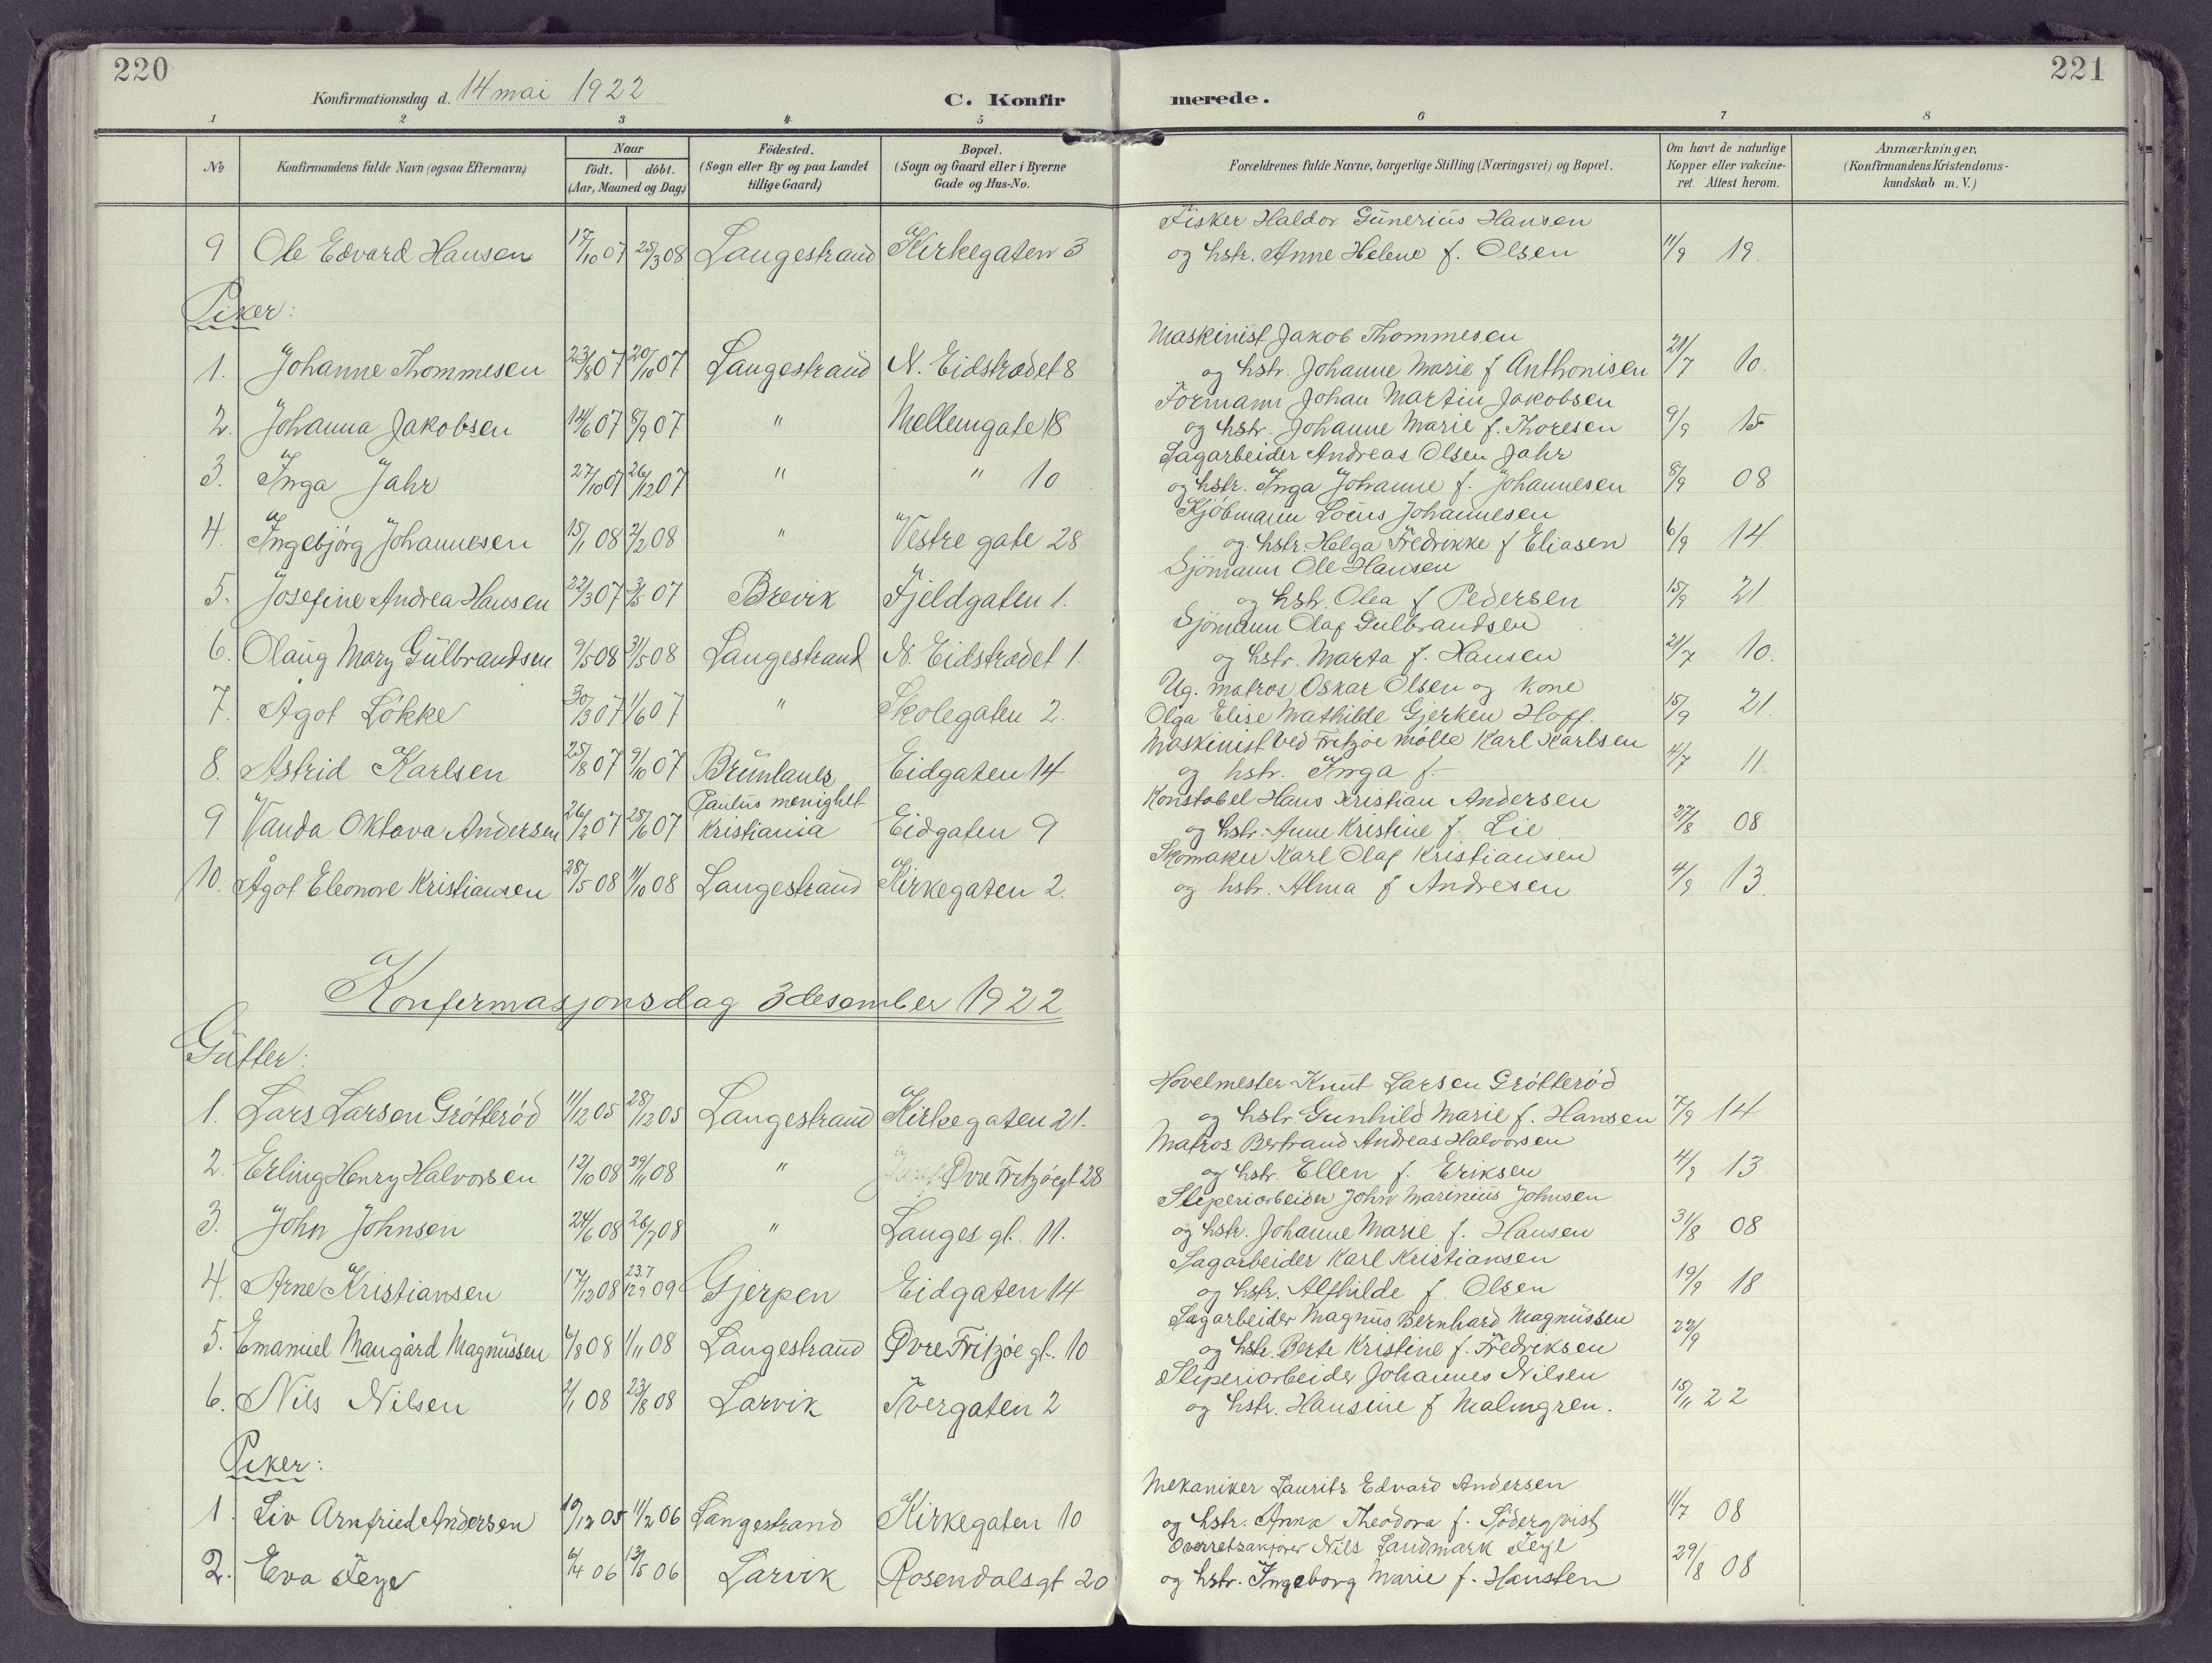 220
Konfirmationsdag d. 14 mai 1922
C. Konfir
1 2 3 4 5
No
Konfirmandens fulde Navn (ogsaa Efternavn)
Naar
födt. döbt.
(Aar, Maaned og Dag)
Födested.
(Sogn eller By og paa Landet
tillige Gaard)
Bopæl.
(Sogn og Gaard eller i Byerne
Gade og Hus-No.
9 Ole Edvard Hansen 17/10 07 25/3 08 Langestrand Kirkegaten 3
Piker:
1. Johanne Thommesen 23/8 07 20/10 07 Langestrand N. Eidstrædet 8
2. Johanna Jakobsen 14/6 07 8/9 07 " Mellemgate 18
3. Inga Jahr 27/10 07 26/12 07 " " 10
4. Ingebjörg Johannesen 15/1 08 2/2 08 " Vestre gate 28
5. Josefine Andrea Hansen 22/3 07 3/5 07 Brevik Fjeldgaten 1.
6. Olaug Mary Gulbrandsen 9/5 08 31/5 08 Langestrand N. Eidstrædet 1.
7. Ågot Løkke 30/3 07 1/6 07 " Skolegaten 2.
8. Astrid Karlsen 25/8 07 9/10 07 Brunlanes Eidgaten 14
Paulus menighet
9 Vanda Oktava Andersen 26/2 07 25/6 07 Kristiania Eidgaten 9
10. Ågot Eleonore Kristiansen 28/5 08 11/10 08 Langestrand Kirkegaten 2.
Konfermasjonsdag 3 desember 1922
Gutter:
1. Lars Larsen Grötteröd 11/12 05 28/12 05 Langestrand Kirkegaten 21.
2. Erling Henry Halvorsen 12/10 08 29/11 08 " Øvre Fritzøegt 28
3. John Johnsen 24/6 08 26/7 08 " Langes gt. 11.
4. Arne Kristiansen 17/12 08 23.7 09 Gjerpen Eidgaten 14
5. Emanuel Maugård Magnussen 6/8 08 1/11 08 Langestrand Øvre Fritzøe gt. 10
6. Nils Nilsen 2/1 08 23/8 08 Larvik Tvergaten 2
Piker:
1. Liv Arnfried Andersen 10/12 05 11/2 06 Langestrand Kirkegaten 10
2. Eva Feye 6/4 06 13/5 06 Larvik Rosendalsgt 20
221
merede.
6 7 8
Forældrenes fulde Navne, borgerlige Stilling (Næringsvei) og Bopæl.
Om havt de naturlige
Kopper eller vakcine-
ret. Attest herom.
Anmærkninger.
(Konfirmandens Kristendoms-
kundskab m. V.)
Fisker Haldor Gunerius Hansen
og hstr. Anne Helene f. Olsen 11/9 19.
Maskinist Jakob Thommesen
og hstr. Johanne Marie f Anthonisen 21/7 10.
Formann Johan Martin Jakobsen
og hstr. Johanne Marie f. Thoresen 9/9 15
Sagarbeider Andreas Olsen Jahr
og hstr. Inga Johanne f. Johannesen 8/9 08
Kjöbmann Johannesen
og hstr. Helga Fredrikke f Eliasen 6/9 14
Sjömann Ole Hansen
og hstr. Olea f Pedersen 15/9 21.
Sjömann Olaf Gulbrandsen
og hstr. Marta f. Hansen 21/7 10.
Ug. matros Oskar Olsen og kone
Olga Elise Mathilde Gjerken Hoff. 15/9 21.
Maskinist ved Fritzøe mölle Karl Karlsen
og hstr. Inga f. 4/7 11.
Konstabel Hans Kristian Andersen
og hstr. Anne Kristine f. Lie 27/8 08
Skomaker Karl Olaf Kristiansen
og hstr. Alma f Andresen 4/9 13.
Hovelmester Knut Larsen Grötteröd
og hstr Gunhild Marie f. Hansen 7/9 14
Matros Bertrand Andreas Halvorsen
og hstr. Ellen f. Eriksen 4/9 13
Sliperiarbeider John Marinius Johnsen
og hstr. Johanne Marie f. Hansen 31/8 08
Sagarbeider Karl Kristiansen
og hstr. Alfhilde f. Olsen 19/9 18
Sagarbeider Magnus Bernhard Magnussen
og hstr. Berte Kristine f. Fredriksen 22/9
Sliperiarbeider Johannes Nilsen
og hstr. Hansine f Malmgren. 15/11 22
Mekaniker Laurits Edvard Andersen
og hstr. Anna Theodora f. Söderqvist 11/7 08
Overretssakförer Nils Landmark Feye
og hstr. Ingeborg Marie f. Hansten 29/8 08